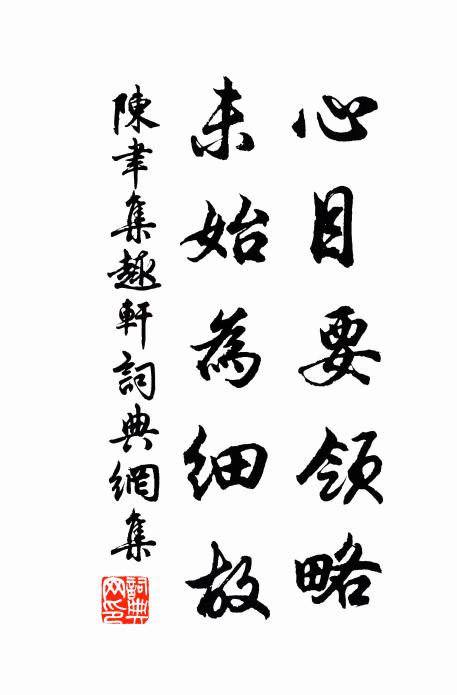 心目要領略
未始為細故
陳韋集趣軒詞典網集
詞典